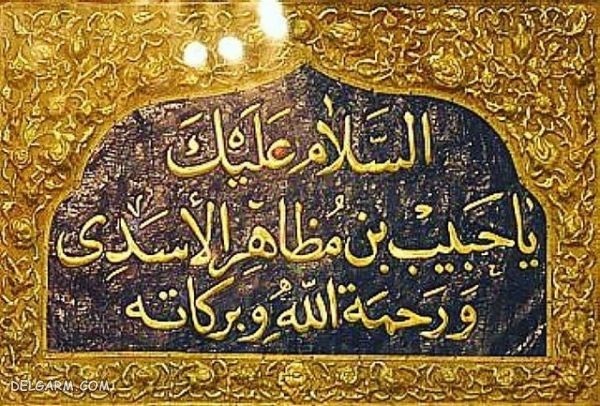 السَّلَامُ عَلَيْكَ
يَا حَبِيْبْ بن مُظاهِرِ الأسَدِى
وَرَحمَة اللهُ وَبَركاته
DELGARM.COM